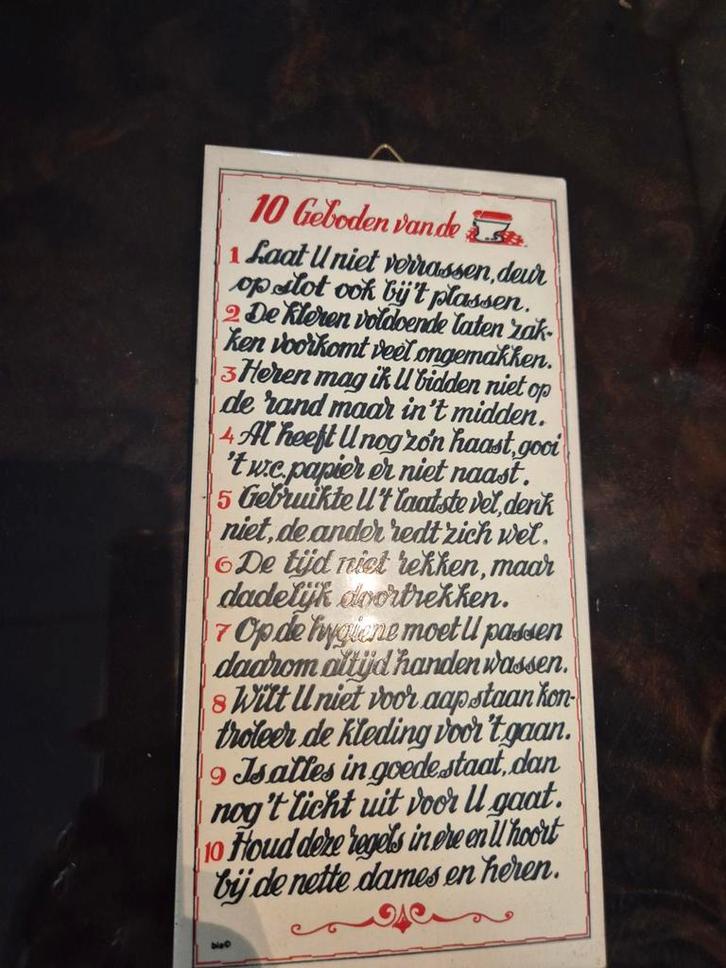 10 Geboden van de
1 Laat U niet verrassen, deur
op slot ook bij't plassen.
2 De kleren voldoende laten zak-
ken voorkomt veel ongemakken.
3 Heren mag ik U bidden niet op
de rand maar in't midden.
4 Al heeft U nog zo'n haast, gooi
't w.c. papier er niet naast.
5 Gebruikte U't laatste vel, denk
niet, de ander redt zich wel.
6 De tijd niet rekken, maar
dadelijk doortrekken.
7 Op de hygiene moet U passen
daarom altijd handen wassen.
8 Wilt U niet voor aap staan kon-
troleer de kleding voor 't gaan.
9 Is alles in goede staat, dan
nog 't licht uit voor U gaat.
10 Houd deze regels in ere en U hoort
bij de nette dames en heren.
bis©